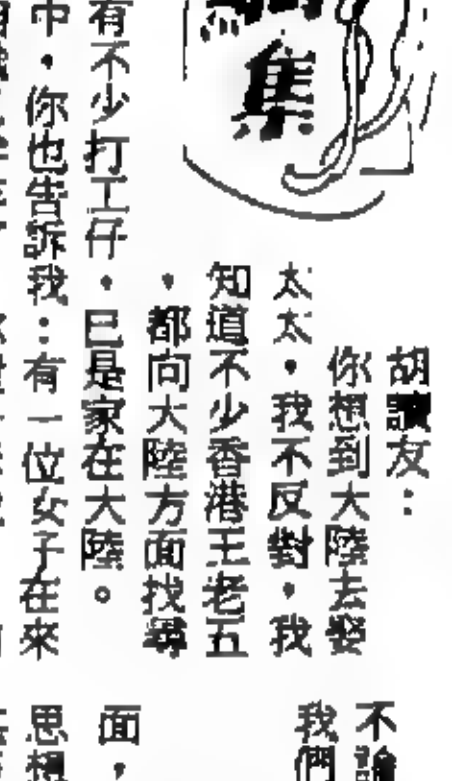 集
胡讀友：
你想到大陸去娶
太太，我不反對，我
知道不少香港王老五
，都向大陸方面找尋
有不少打工仔，巳是家在大陸。
中，你也告訴我：有一位女子在來
不
我們
面，
思想